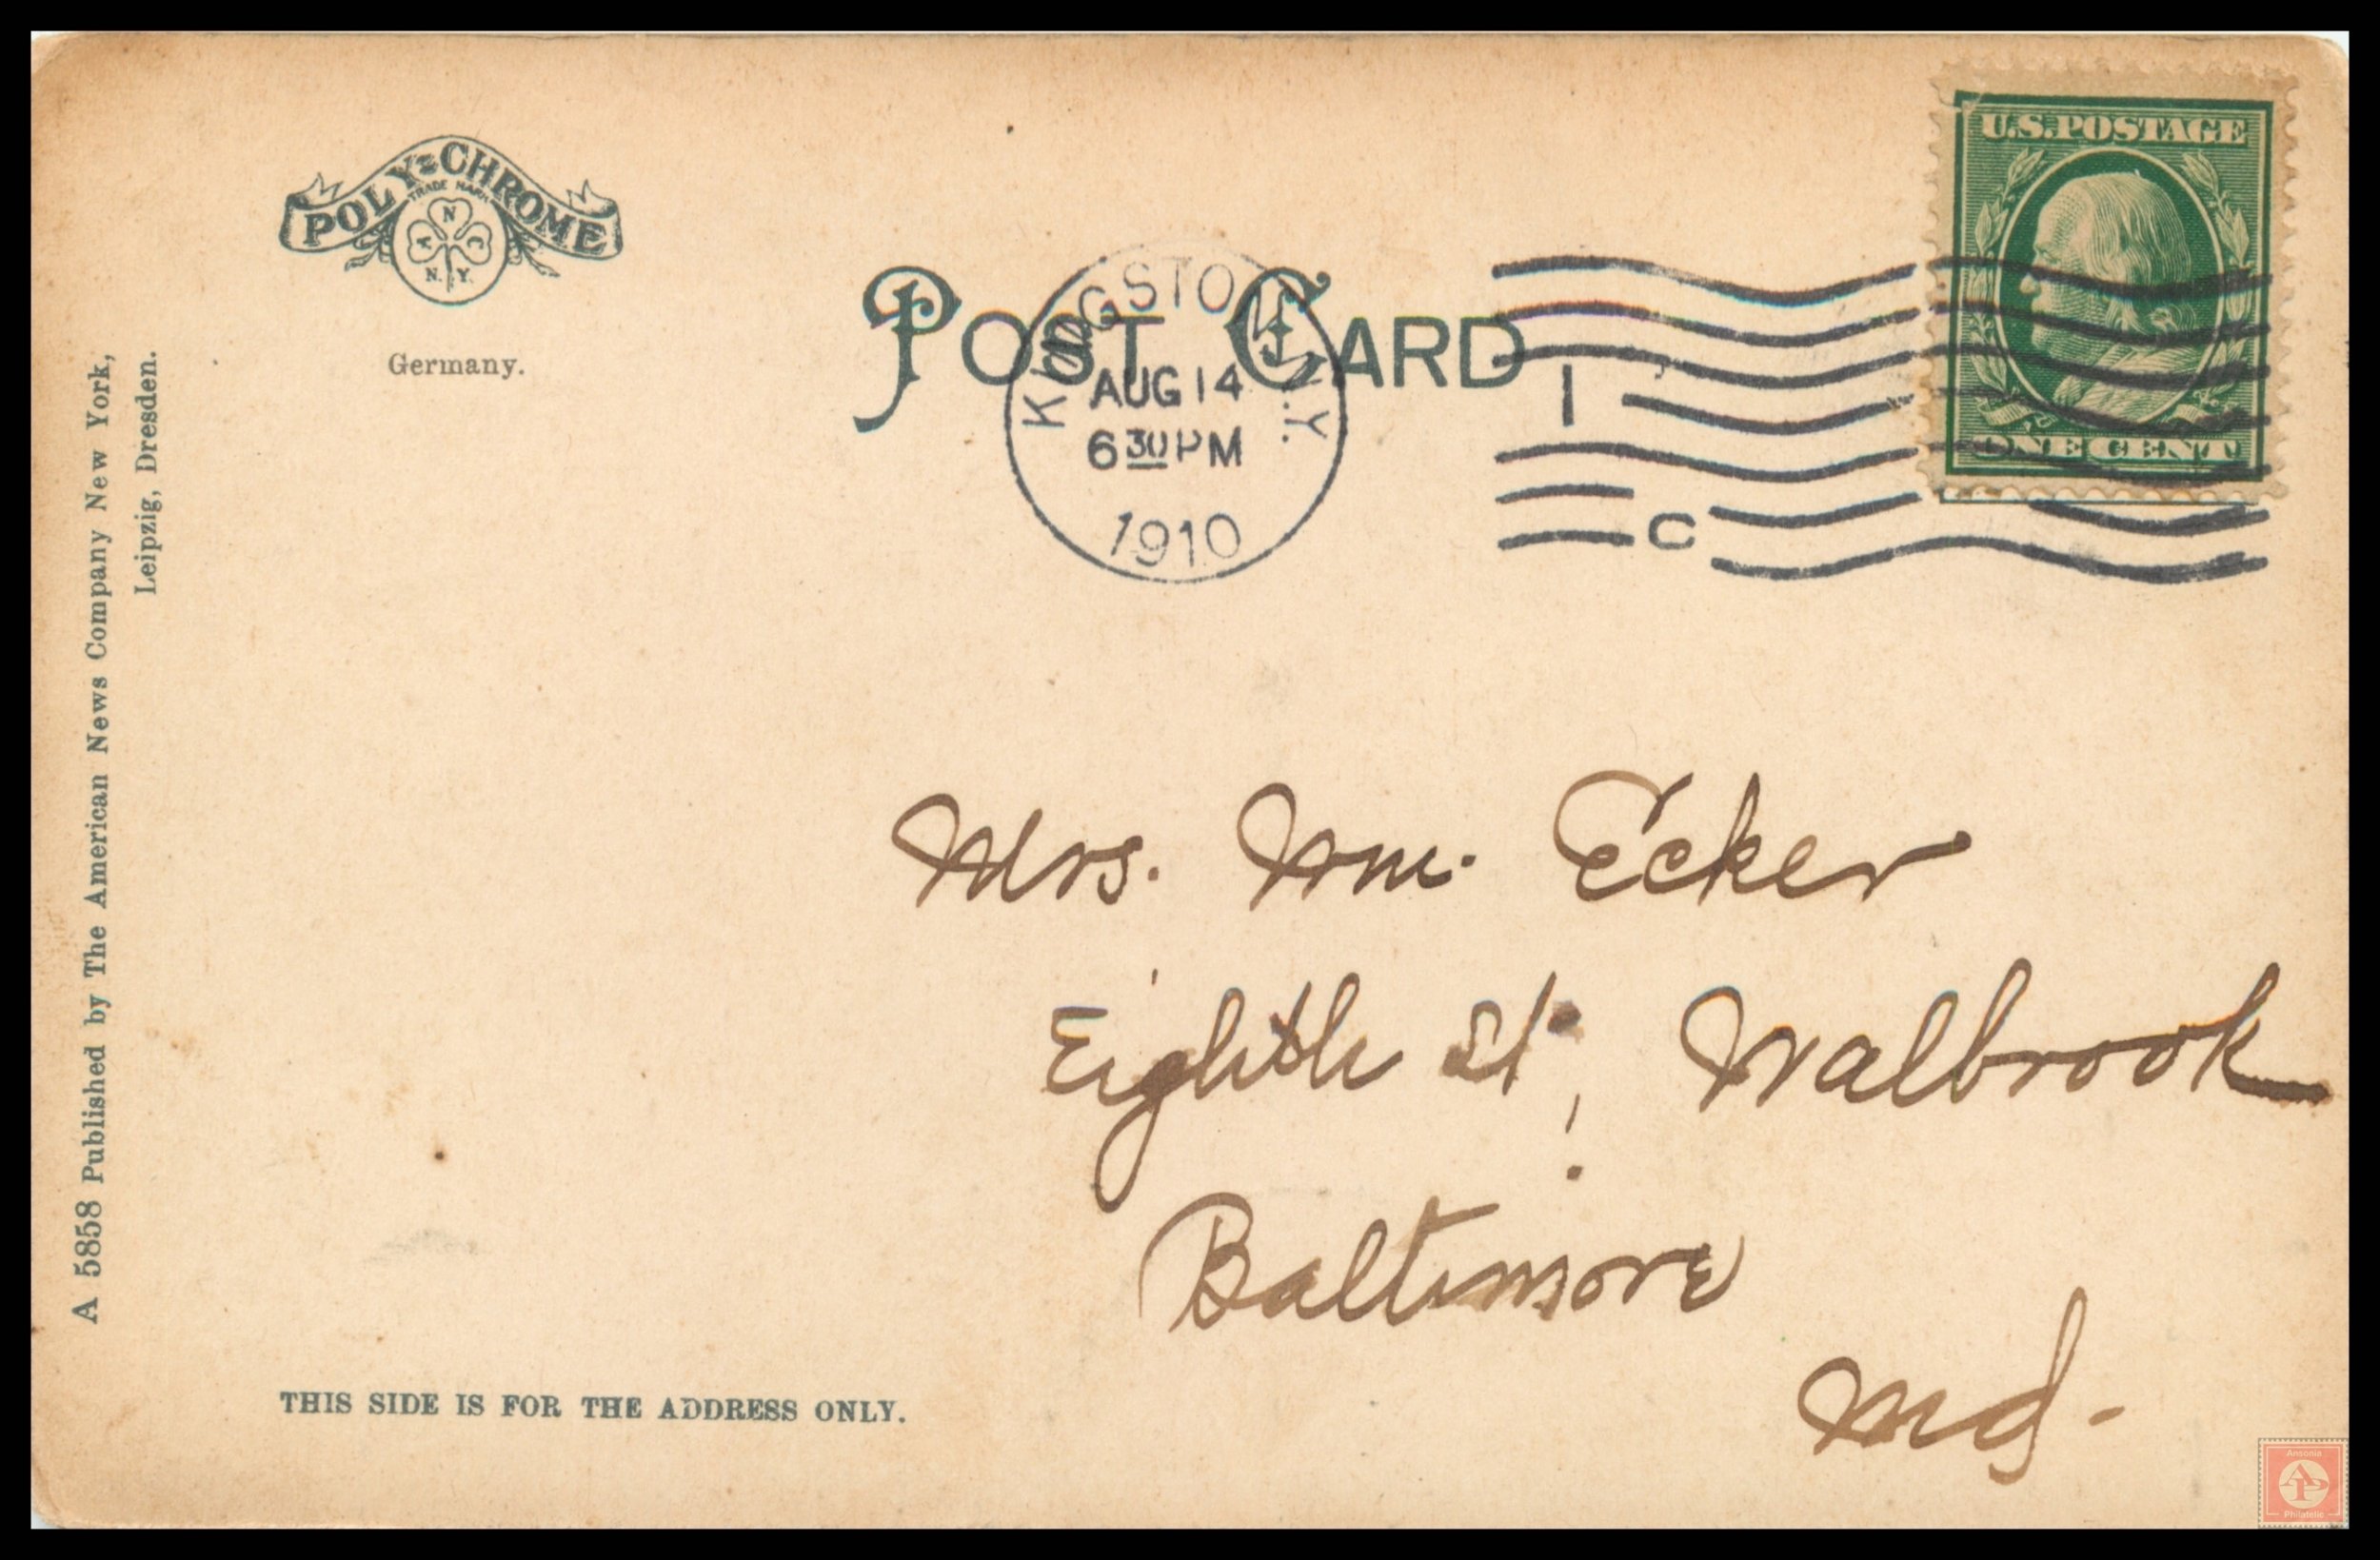 POLY-CHROME
TRADE MARK
A N C
N. Y.
Germany.
POST CARD
KINGSTON, N.Y.
AUG 14
6 30 PM
1910
1
C
U.S. POSTAGE
ONE CENT
A 5858 Published by The American News Company New York,
Leipzig, Dresden.
Mrs. Wm. Ecker
Eighth St, Walbrook
Baltimore
Md.
THIS SIDE IS FOR THE ADDRESS ONLY.
Ansonia
AP
Philatelic